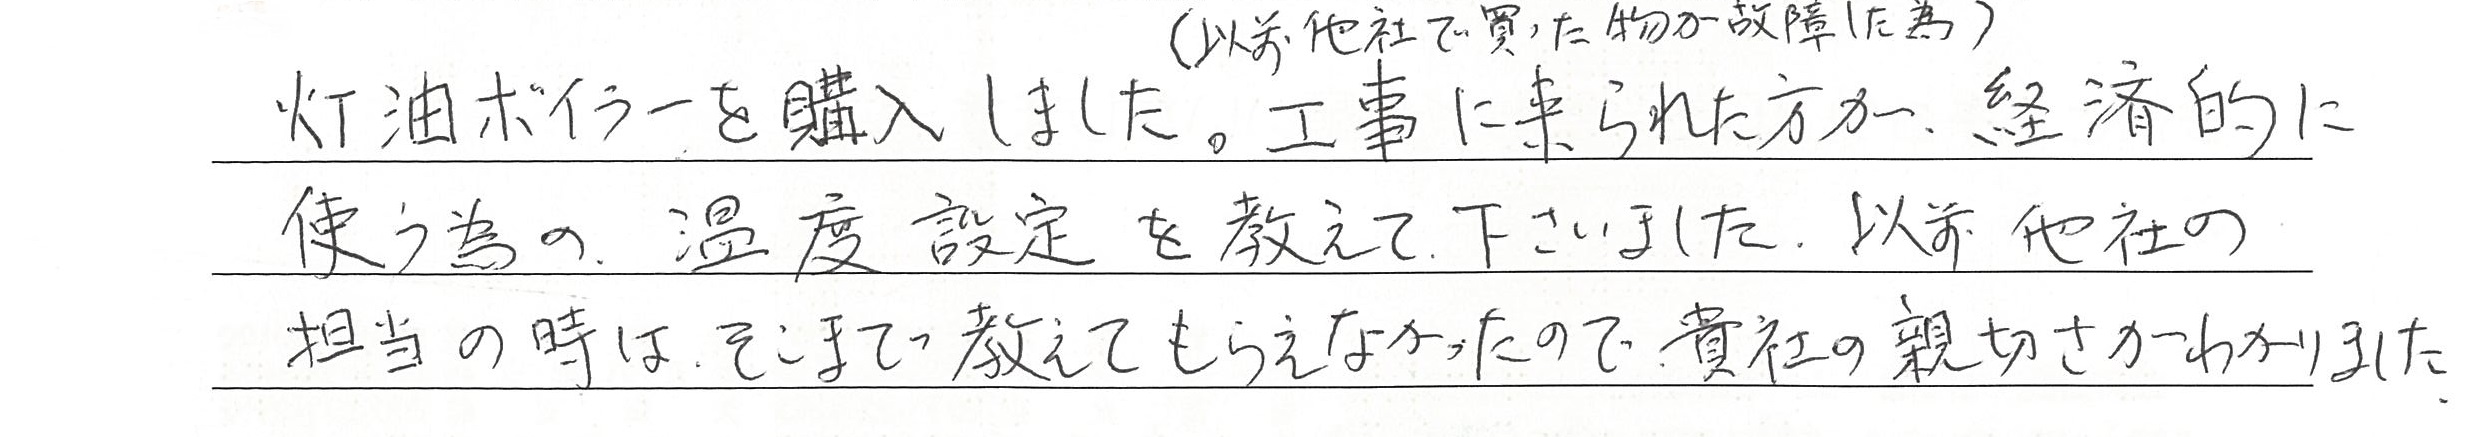 (以前他社で買った物が故障した為)
灯油ボイラーを購入しました。工事に来られた方が、経済的に
使う為の、温度設定を教えて下さいました。以前他社の
担当の時は、そこまで教えてもらえなかったので、貴社の親切さがわかりました。